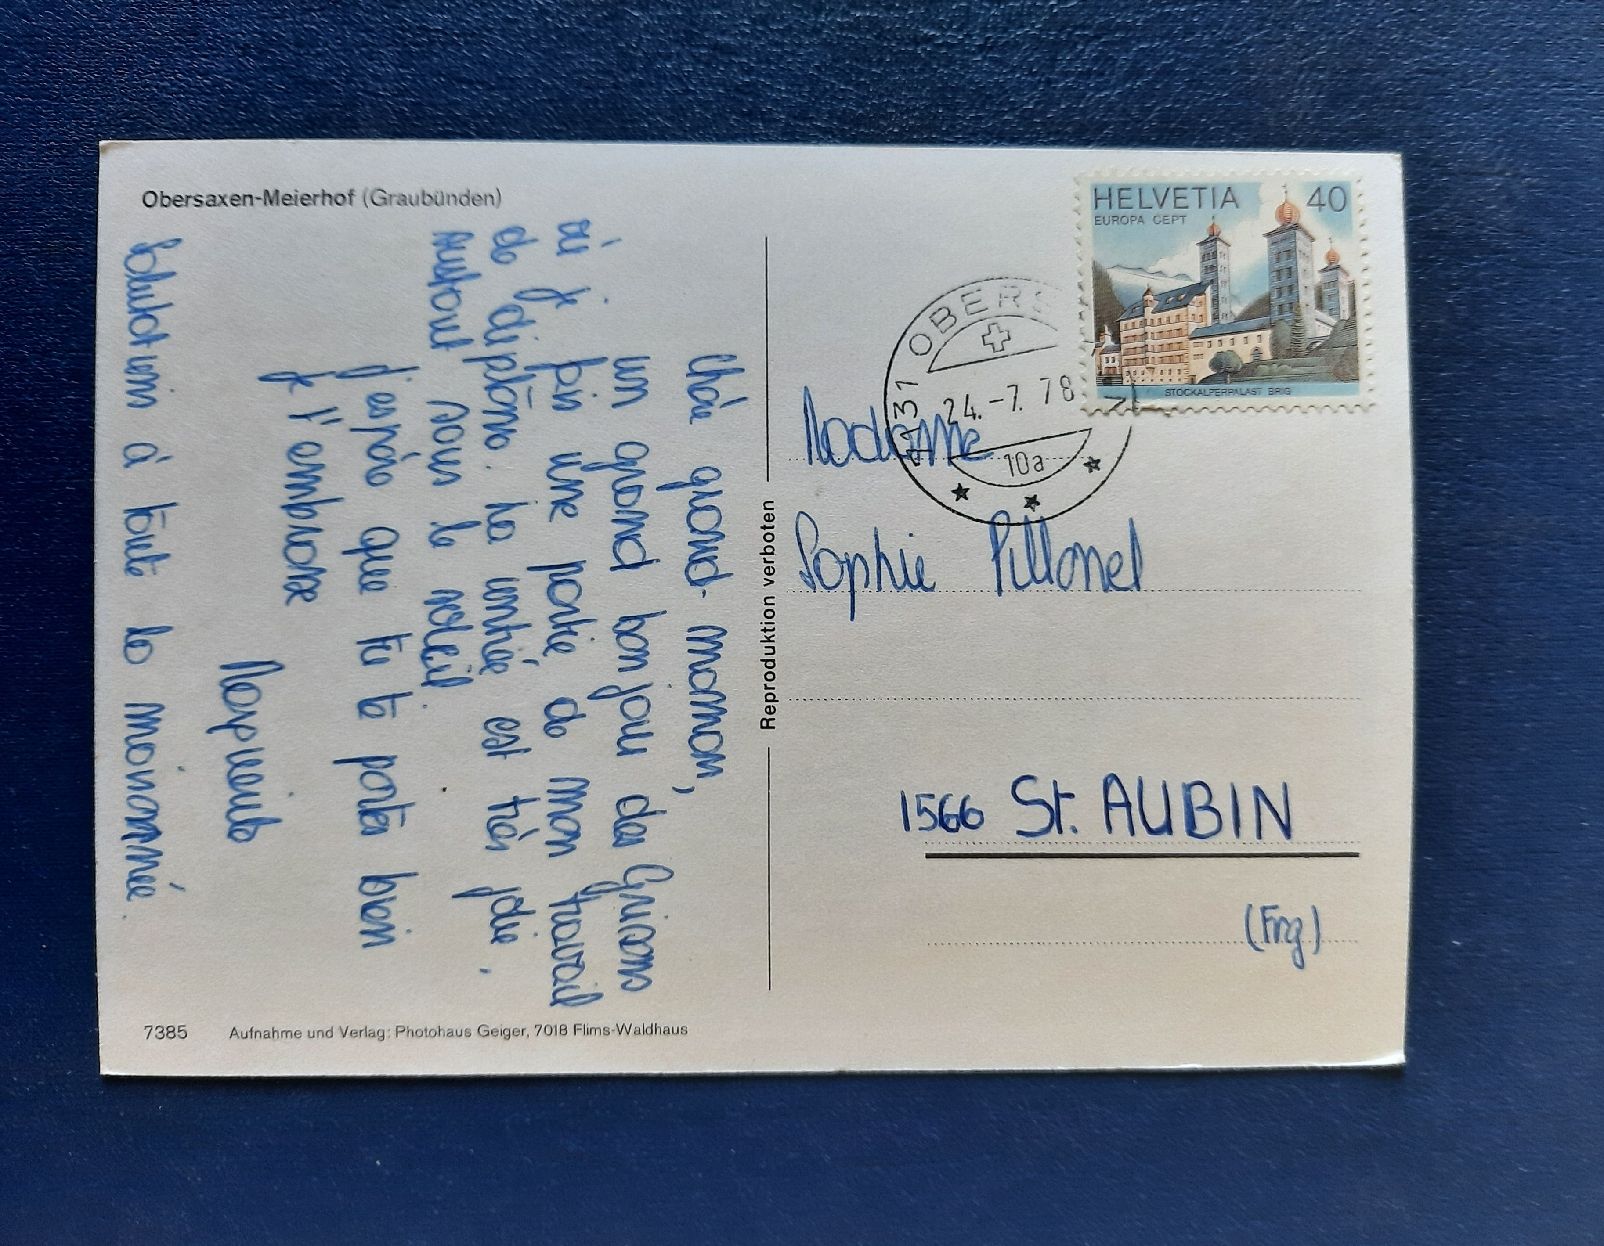 Obersaxen-Meierhof (Graubünden)
Chère grand-maman,
un grand bonjour des Grisons
où je fis une partie de mon travail
de diplôme. La contrée est très jolie,
surtout sous le soleil
j'espère que tu te portes bien
je t'embrasse
Salutation à toute la maisonnée.
7385 Aufnahme und Verlag: Photohaus Geiger, 7018 Flims-Waldhaus
Reproduktion verboten
HELVETIA 40
EUROPA CEPT
STOCKALPERPALAST BRIG
OBERS
24.-7.78
10a
Madame
Sophie Pillonel
1566 St. AUBIN
(Frg)